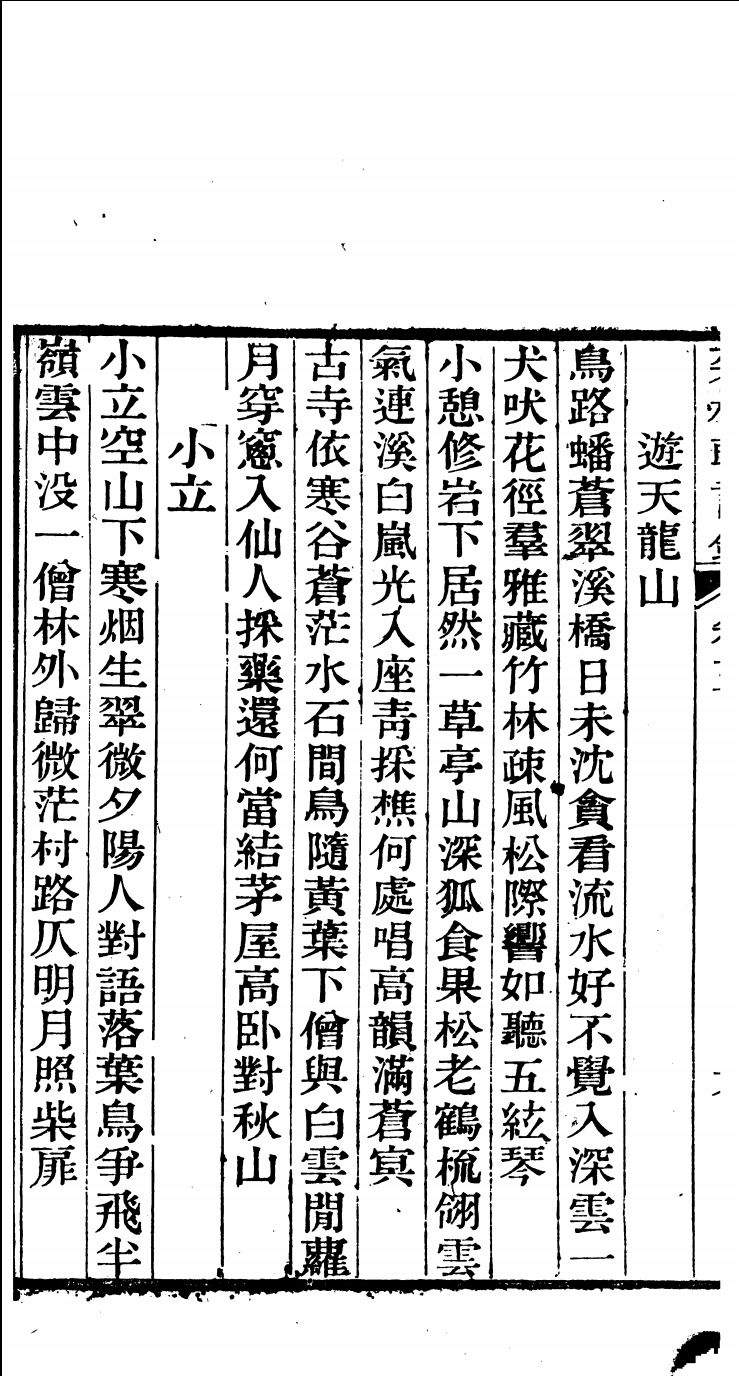 遊天龍山
鳥路蟠蒼翠溪橋日未沈貪看流水好不覺入深雲一
犬吠花徑羣雅藏竹林疎風松際響如聽五絃琴
小憩修岩下居然一草亭山深狐食果松老鶴梳翎雲
氣連溪白嵐光入座靑採樵何處唱高韻滿蒼㝠
古寺依寒谷蒼茫水石間鳥隨黃葉下僧與白雲閒蘿
月穿窻入仙人採藥還何當結茅屋高卧對秋山
小立
小立空山下寒烟生翠微夕陽人對語落葉鳥爭飛半
嶺雲中没一僧林外歸微茫村路仄明月照柴扉